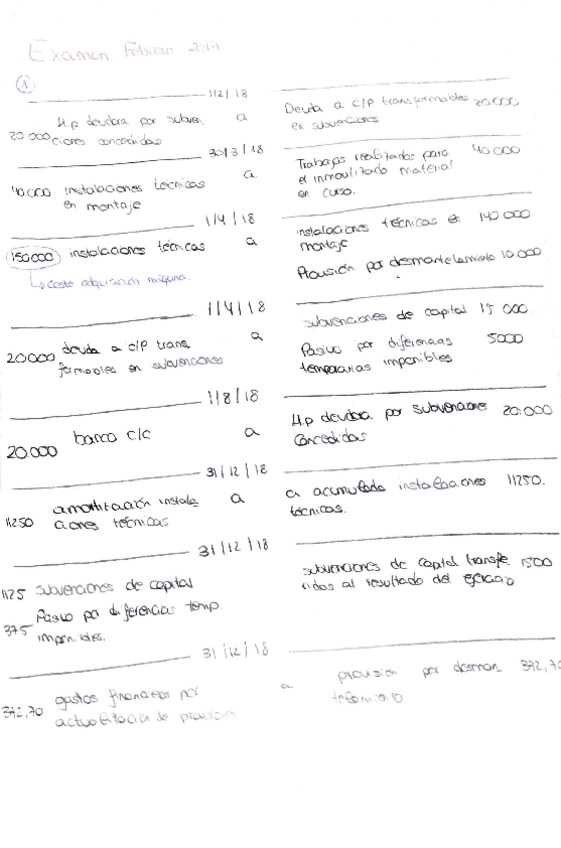 Examen Febrero 2019
1
1/2/18
20.000 H.p deudora por subven. a Deuda a c/p transformables 20.000
ciones concedidas en subvenciones
30/3/18
40.000 instalaciones técnicas a Trabajos realizados para 40.000
en montaje el inmovilizado material
en curso.
1/4/18
150.000 instalaciones técnicas a instalaciones técnicas en 140.000
montaje
Provisión por desmantelamiento 10.000
↳ coste adquisición máquina.
1/4/18
20.000 deuda a c/p trans a subvenciones de capital 15 000
formables en subvenciones Pasivo por diferencias 5000
temporarias imponibles
1/8/18
20.000 banco c/c a H.p deudora por subvenciones 20.000
concedidas
31/12/18
11250 amortización instala a a acumulada instalaciones 11250.
ciones técnicas técnicas.
31/12/18
1125 subvenciones de capital subvenciones de capital transfe. 1500
375 Pasivo por diferencias temp ridas al resultado del ejercicio
imponibles.
31/12/18
372,70 gastos financieros por a provisión por desman 372,70
actualización de provisión telamiento